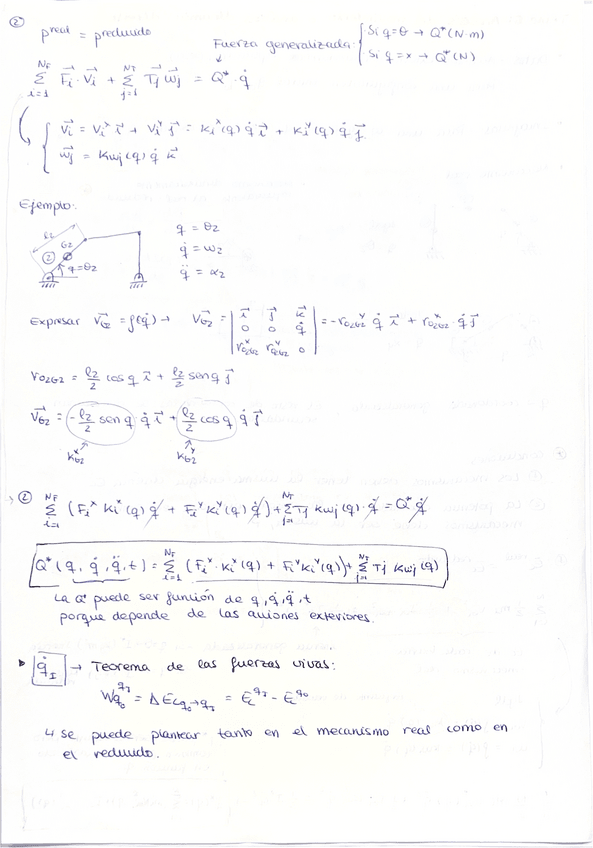 ② Preal = Preducido
Fuerza generalizada: { Si q=θ → Q*(N·m)
Si q=x → Q*(N)
∑_{i=1}^{N_F} F⃗i · V⃗i + ∑_{j=1}^{N_T} T⃗j w⃗j = Q* · q̇
{ V⃗i = Vi^x i⃗ + Vi^y j⃗ = Ki^x(q) q̇ i⃗ + Ki^y(q) q̇ j⃗
w⃗j = Kwj(q) q̇ k⃗
Ejemplo:
l2 G2 ② q=θ2
q = θ2
q̇ = ω2
q̈ = α2
Expresar V⃗G2 = f(q̇) → V⃗G2 = | i⃗ j⃗ k⃗ ; 0 0 q̇ ; r^x_{O2G2} r^y_{O2G2} 0 | = -r^y_{O2G2} q̇ i⃗ + r^x_{O2G2} · q̇ j⃗
r_{O2G2} = l2/2 cos q i⃗ + l2/2 sen q j⃗
V⃗G2 = -l2/2 sen q q̇ i⃗ + l2/2 cos q q̇ j⃗
K^x_{G2} K^y_{G2}
→ ② ∑_{i=1}^{N_F} (Fi^x Ki^x(q) q̇ + Fi^y Ki^y(q) q̇) + ∑_{j=1}^{N_T} Tj Kwj(q) · q̇ = Q* q̇
Q*(q, q̇, q̈, t) = ∑_{i=1}^{N_F} (Fi^x · Ki^x(q) + Fi^y Ki^y(q)) + ∑_{j=1}^{N_T} Tj Kwj(q)
La Q* puede ser función de q, q̇, q̈, t
porque depende de las acciones exteriores.
▸ q̇_I → Teorema de las fuerzas vivas:
W_{q0}^{qI} = ΔEc_{q0→qI} = Ec^{qI} - Ec^{q0}
↳ Se puede plantear tanto en el mecanismo real como en
el reducido.